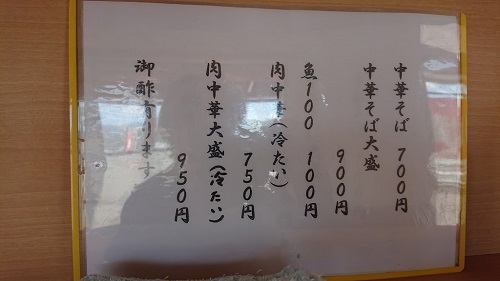 中華そば 700円
中華そば大盛
900円
魚100 100円
肉中華(冷たい)
750円
肉中華大盛(冷たい)
950円
御酢有ります